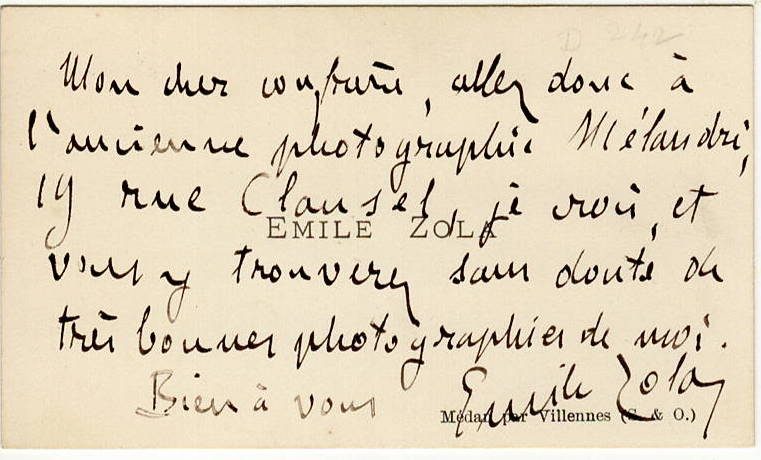 D 242
Mon cher confrère, allez donc à
l'ancienne photographie Mélandri,
19 rue Clausel, je crois, et
EMILE ZOLA
vous y trouverez sans doute de
très bonnes photographies de moi.
Bien à vous Emile Zola
Médan par Villennes (S. & O.)